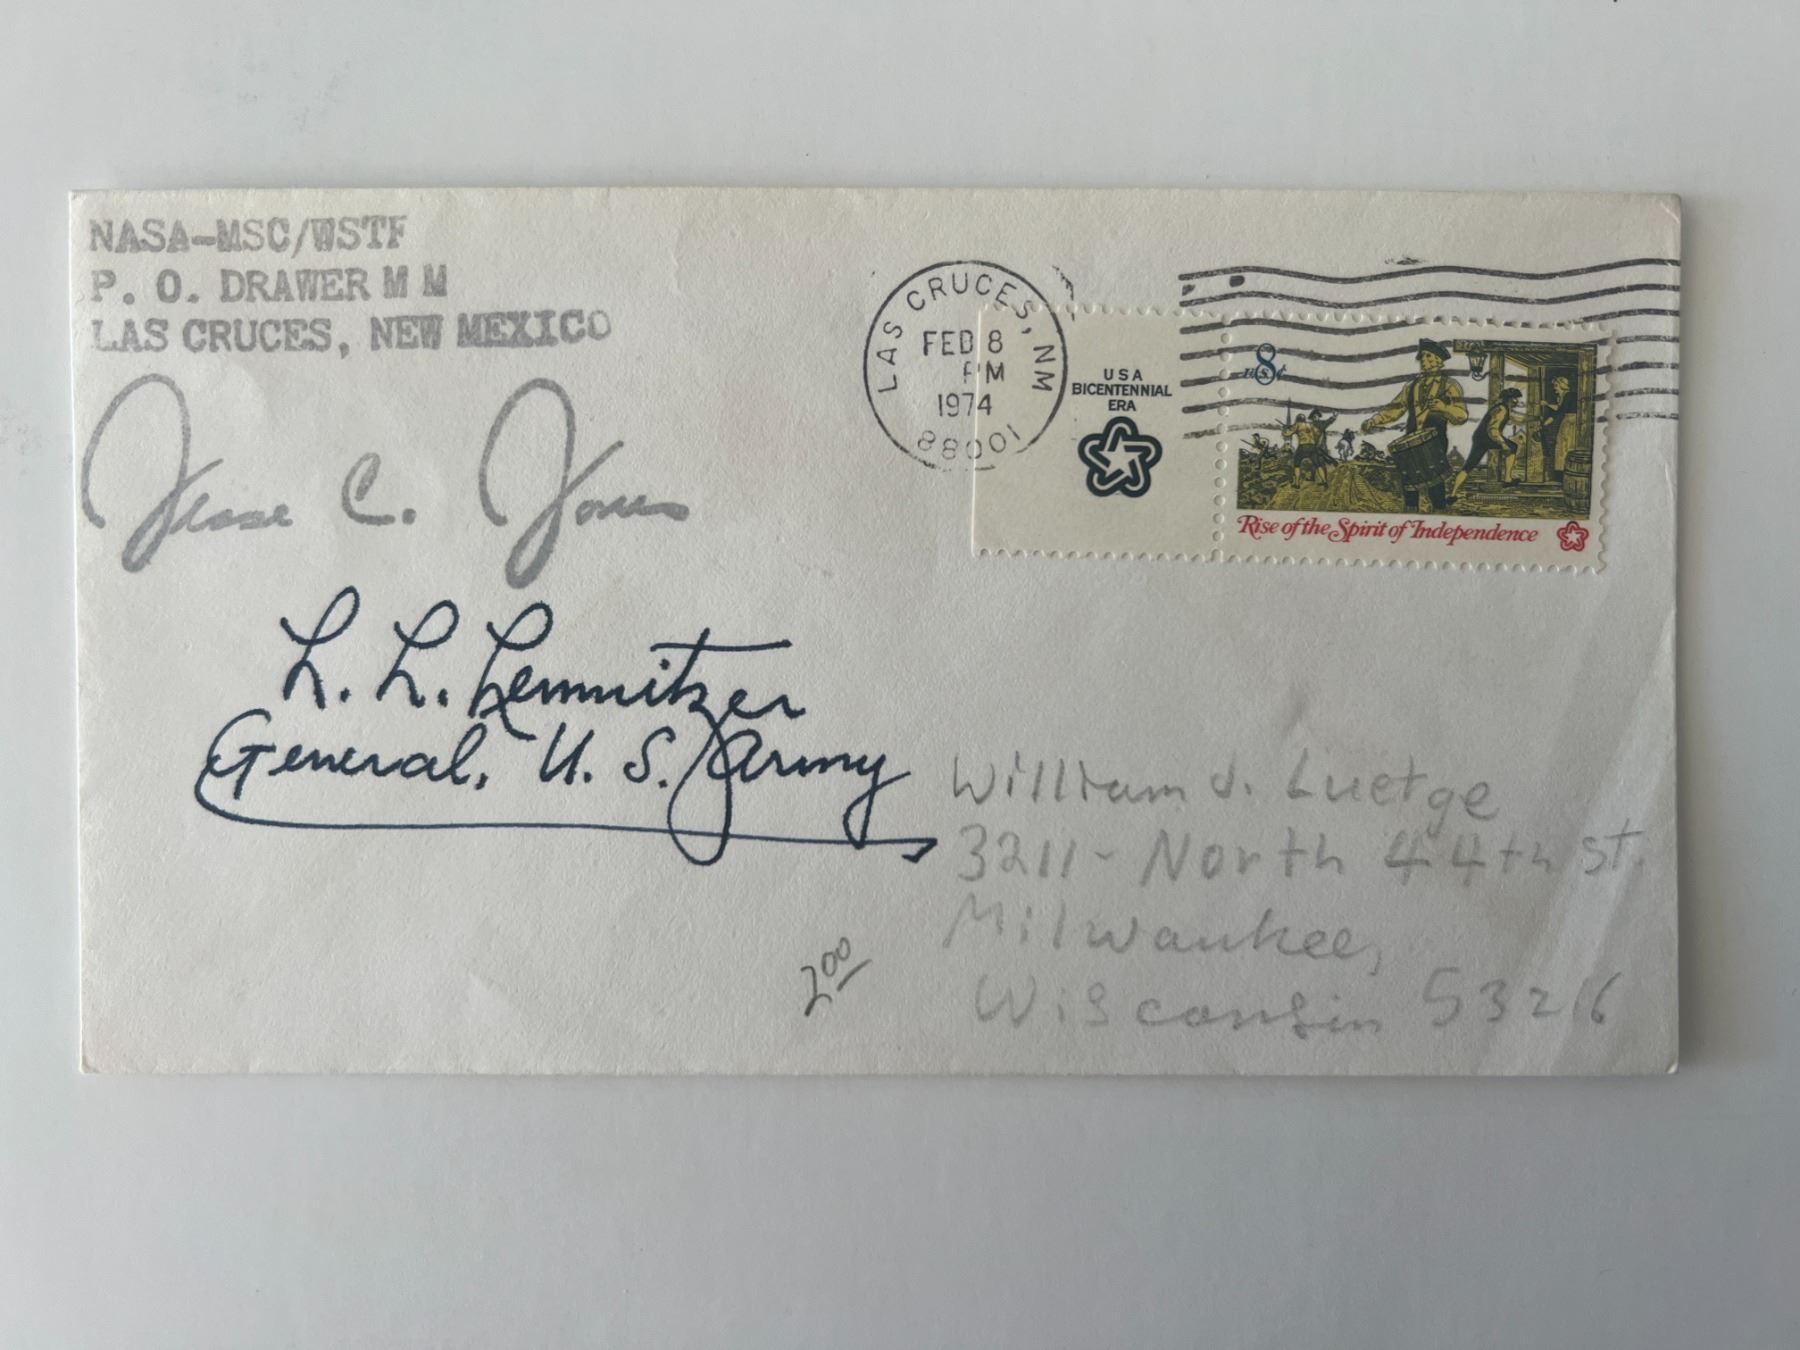 NASA-MSC/WSTF
P. O. DRAWER M M
LAS CRUCES, NEW MEXICO
Jesse C. Jones
LAS CRUCES, NM
FEB 8
PM
1974
88001
USA
BICENTENNIAL
ERA
8
U.S. ¢
Rise of the Spirit of Independence
L. L. Lemnitzer
General, U. S. Army
William J. Luetge
3211- North 44th St.
Milwaukee,
Wisconsin 53216
2.00